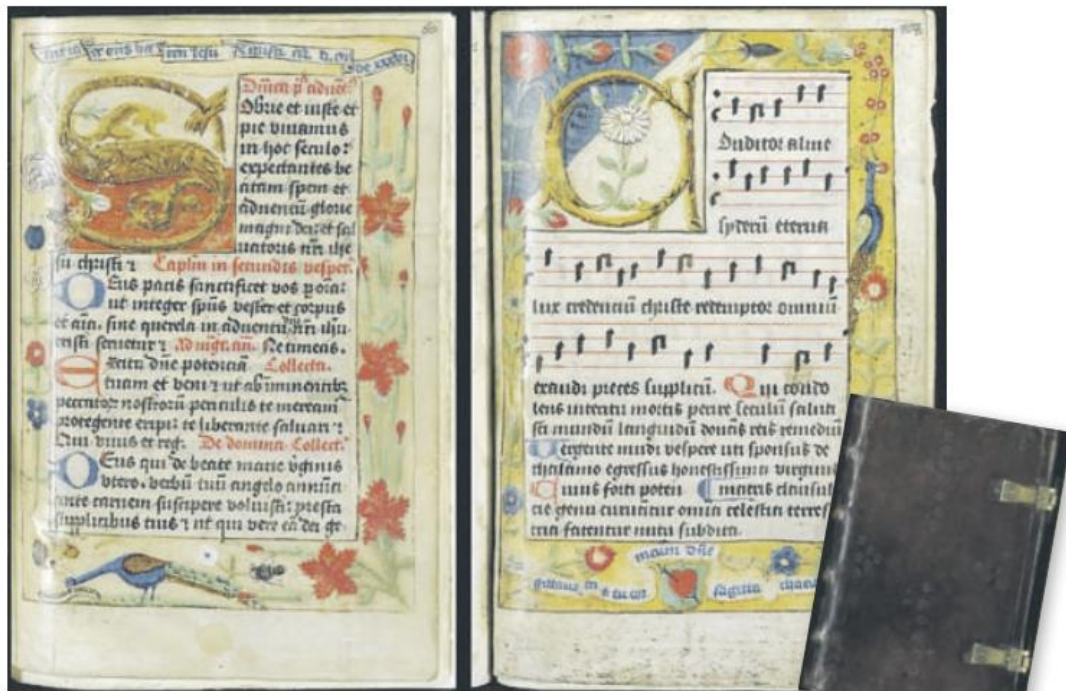 Obrie et iuste et
pie viuamus
in hoc seculo:
expectantes be
atam spem et
aduentū glorie
magni dei et sal
uatoris nr̄i ihe
su christi ⁊ Capl̄m in secundis vesper̄
Eus pacis sanctificet vos
ut integer spūs vester et corpus
et aīa, sine querela in aduentu nr̄i
cristi seruetur ⁊ Ne timeas.
dn̄e potenciā Collecta.
tuam et veni ⁊ ut ab
nostrorū periculis te
protegente eripi: te liberante saluari ⁊
Qui viuis et reg. De domina Collect.
Eus qui de beate marie v̄ginis
vtero. verbū tuū angelo
carnem suscipere voluisti: presta
supplicibus tuis ⁊ ut qui vere eā dei ge
Onditor alme
syderū eterna
lux credenciū christe redemptor omniū
exaudi preces supplicū. Qui condo
lens interitu mortis perire seculū salua
sti mundū languidū donās reis remediū
ergente mundi vespere uti sponsus de
thalamo egressus honestissima virginis
matris clausul
uius forti poten
genu omnia celestia terres
fatentur nutu subdita.
sagitta